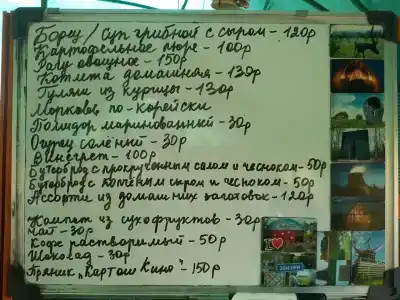 Борщ / Суп грибной с сыром - 120р
Картофельное пюре - 100р
Рагу овощное - 150р
Котлета домашняя - 130р
Гуляш из курицы - 130р
Морковь по-корейски
Помидор маринованный - 30р
Огурец солёный - 30р
Винегрет - 100р
Бутерброд с прокрученным салом и чесноком - 50р
Бутерброд с копчёным сыром и чесноком - 50р
Ассорти из домашних заготовок - 120р
Компот из сухофруктов - 30р
Чай - 30р
Кофе растворимый - 50р
Шоколад - 30р
Пряник "Картош Кино" - 150р
I